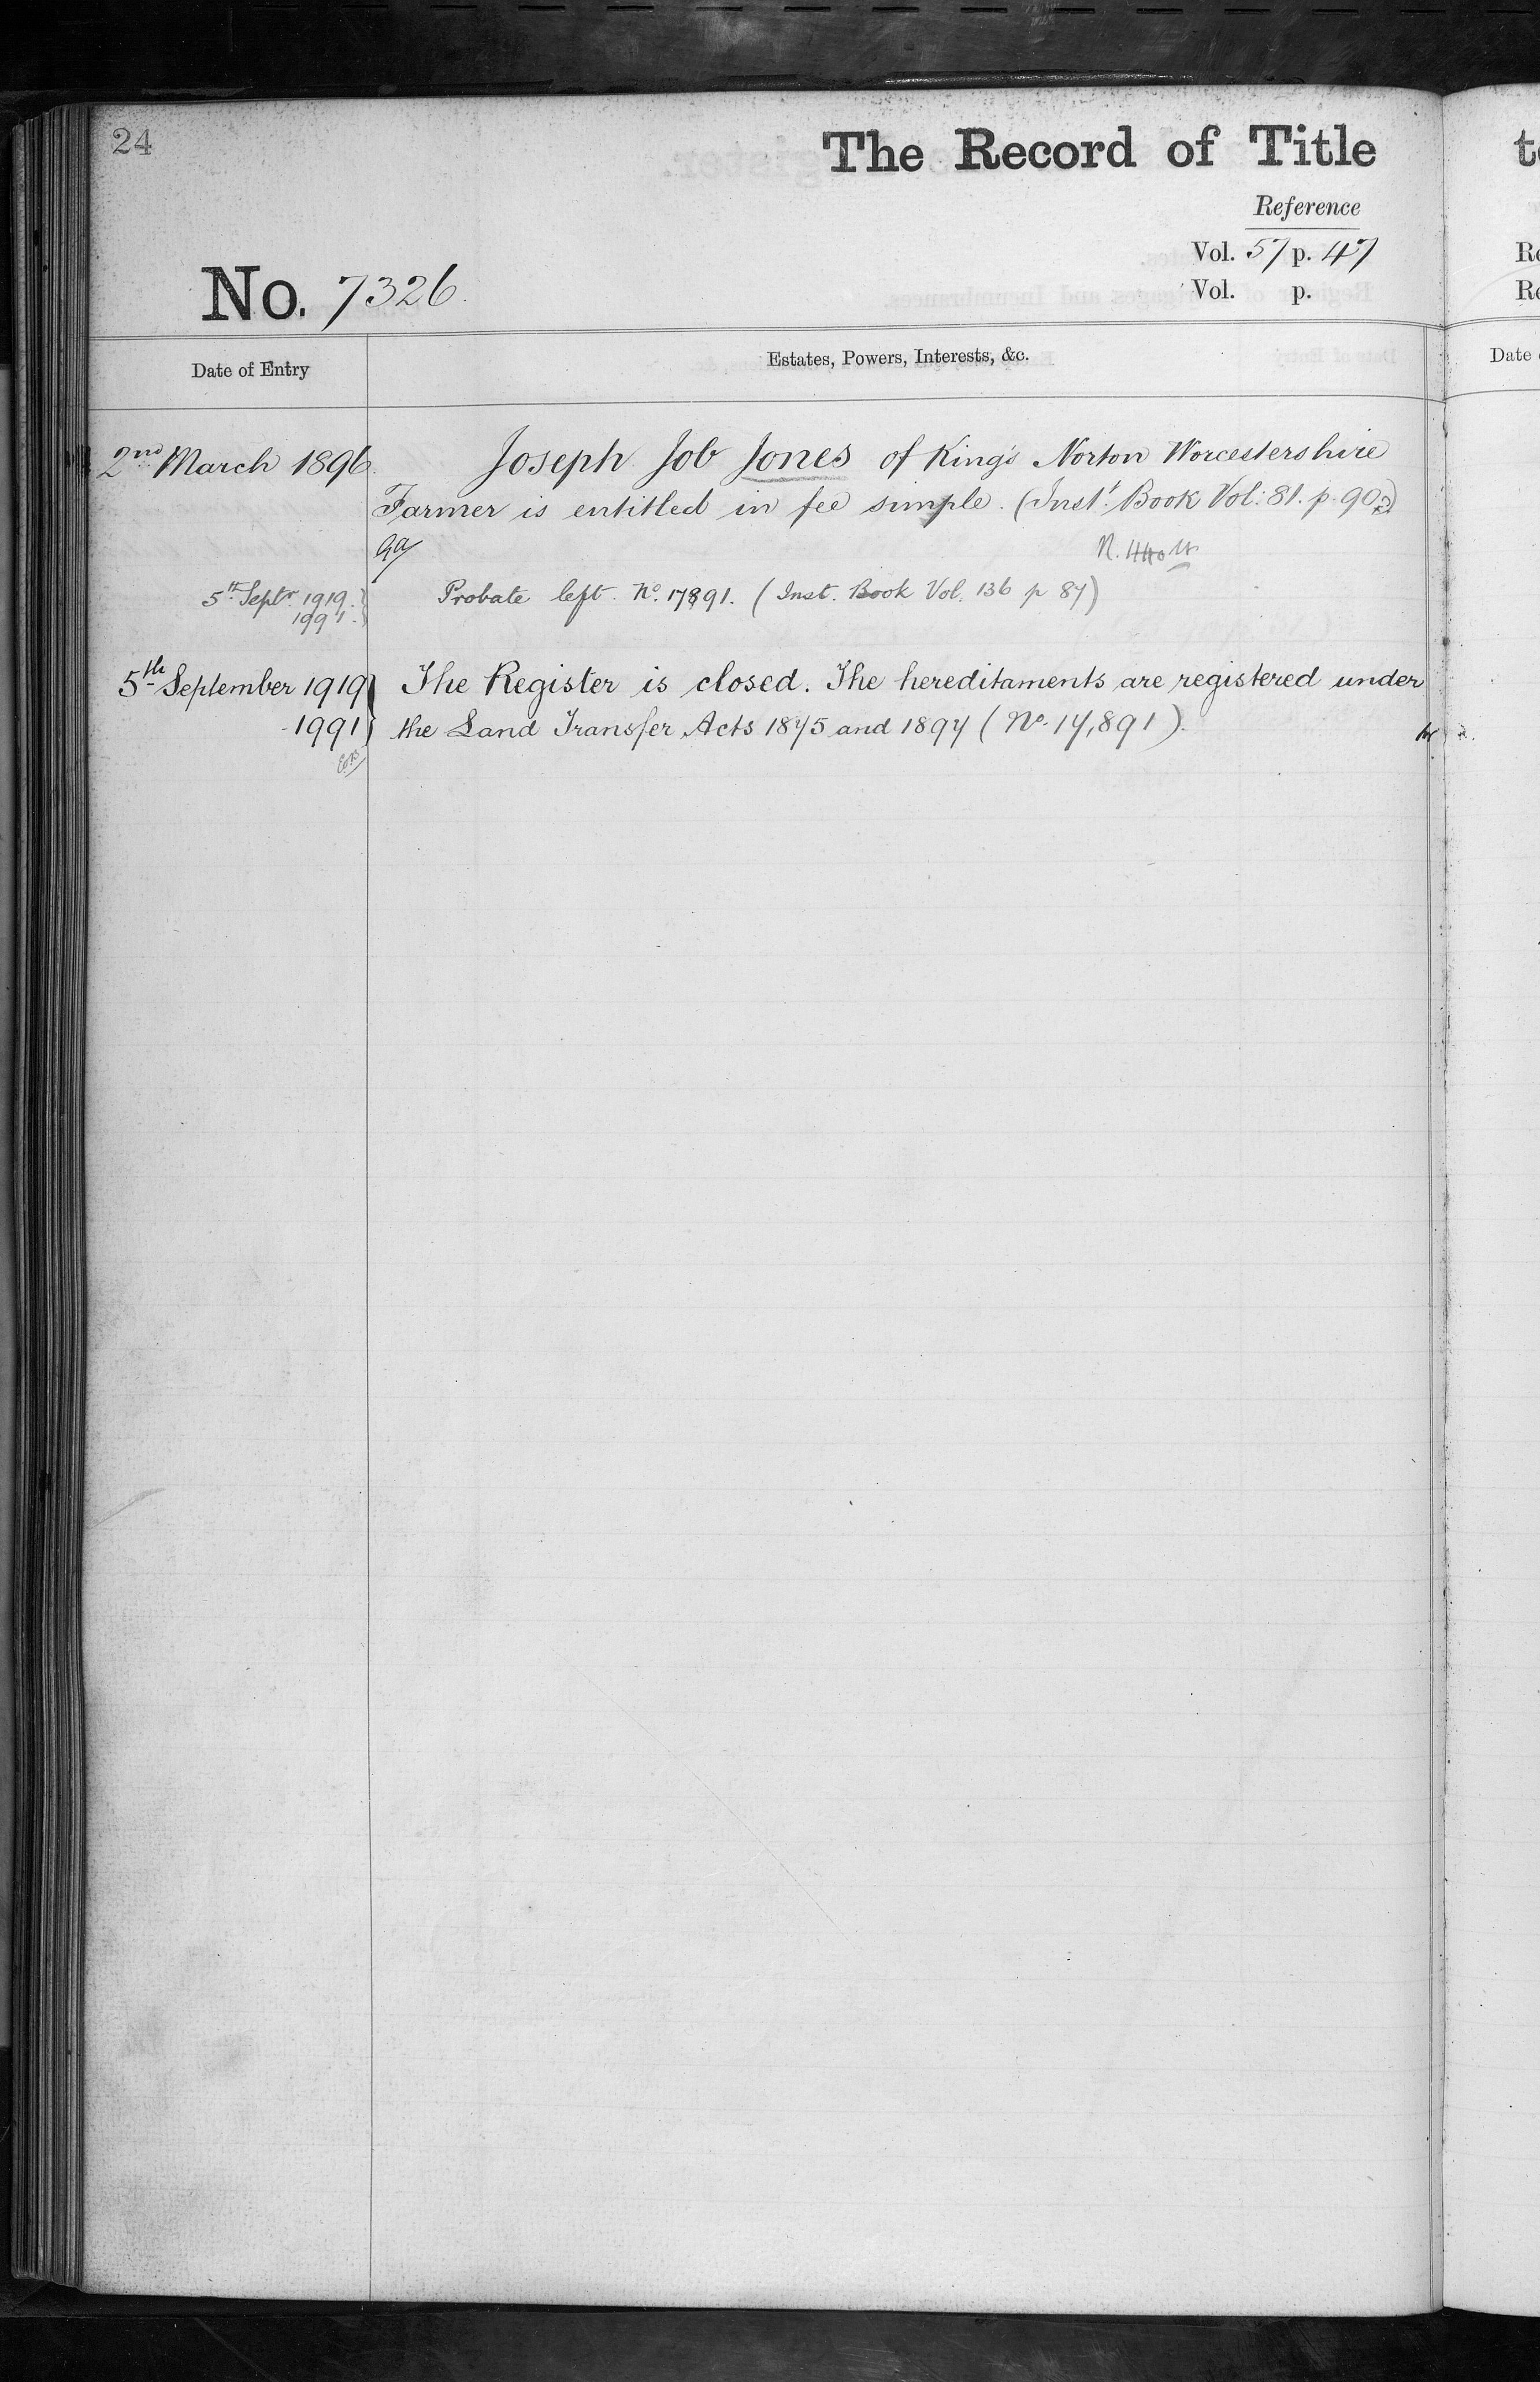 24
The Record of Title
Reference
Vol. 57 p. 47
Vol. p.
No. 7326.
Date of Entry
Estates, Powers, Interests, &c.
2nd March 1896.
Joseph Job Jones of King's Norton Worcestershire
Farmer is entitled in fee simple. (Inst. Book Vol: 81. p. 90.)
5th Septr. 1919.
1991.
Probate left. No. 17891. (Inst. Book Vol. 136 p 87)
5th September 1919
1991
The Register is closed. The hereditaments are registered under
the Land Transfer Acts 1875 and 1897 (No. 17,891).
Date